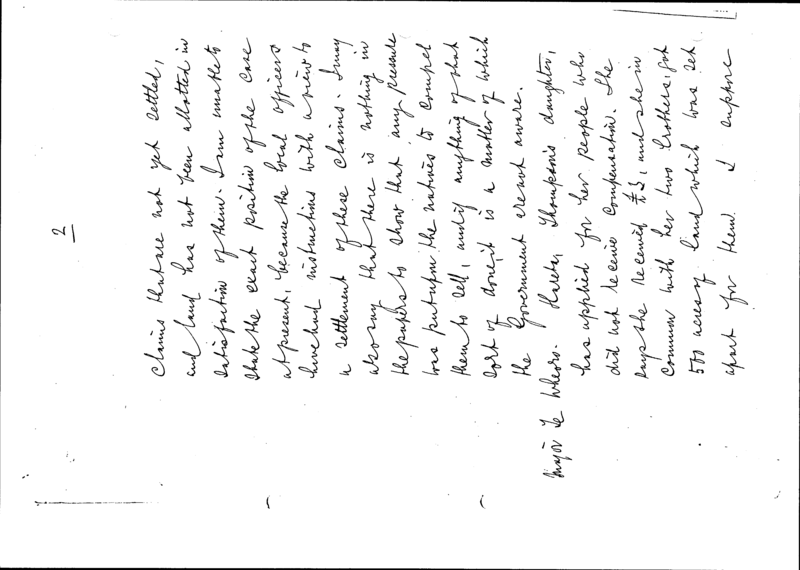 2
claims that are not yet settled,
and land has not been allotted in
satisfaction of them. I am unable to
state the exact position of the case
at present, because the local officers
have had instructions with a view to
a settlement of these claims. I may
also say that there is nothing in
the papers to show that any pressure
was put upon the natives to compel
them to sell, and if anything of that
sort of done, it is a matter of which
the Government are not aware.
Major Te Wheoro. Harete, Thompson's daughter,
has applied for her people who
did not receive compensation. She
says she received £3, and she in
common with her two brothers, got
500 acres of land which was set
apart for them. I suppose